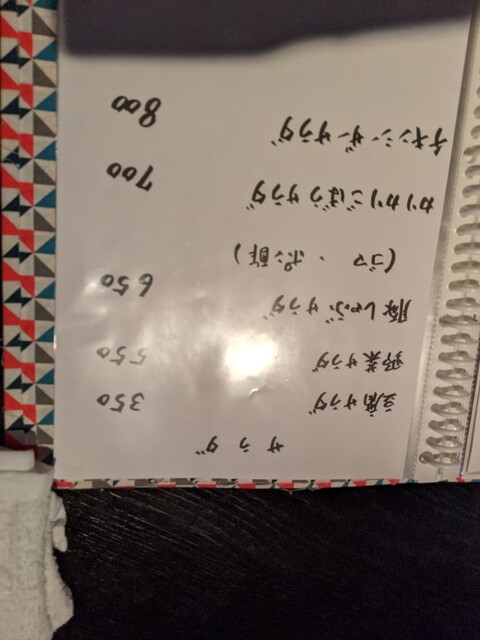 サラダ
豆腐サラダ 350
野菜サラダ 550
豚しゃぶサラダ 650
(ゴマ・ポン酢)
カリカリごぼうサラダ 700
チキンシーザーサラダ 800